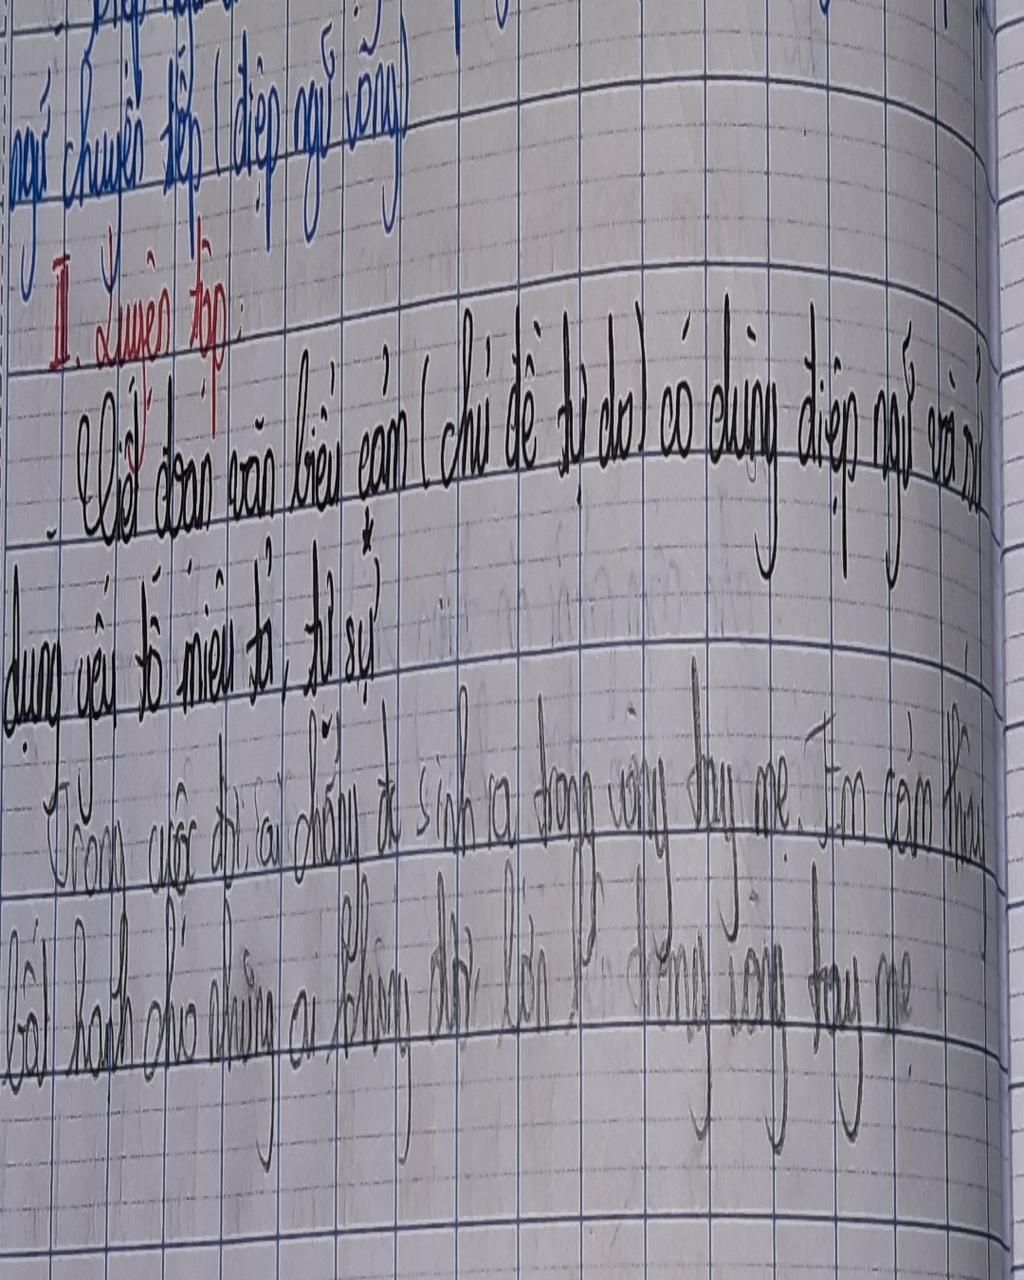 ngữ chuyển tiếp (điệp ngữ vòng)
II. Luyện tập:
Viết đoạn văn biểu cảm (chủ đề tự do) có dùng điệp ngữ và sử
dụng yếu tố miêu tả, tự sự
Trong cuộc đời, ai chẳng đc sinh ra trong vòng tay mẹ. Em cảm thấy
bất hạnh cho những ai không được lớn trong vòng tay mẹ